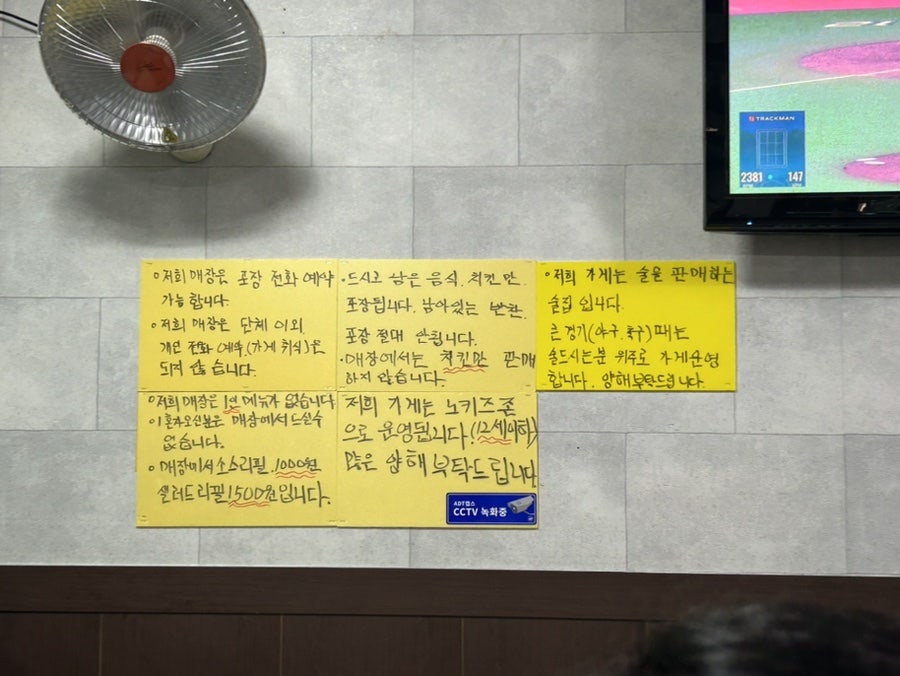 TRACKMAN
2381 147
◦저희 매장은 포장 전화 예약
가능합니다.
◦저희 매장은 단체 이외,
개인 전화 예약.(가게 취식)은
되지 않습니다.
·드시고 남은 음식. 치킨만
포장됩니다. 남아있는 반찬.
포장 절대 안됩니다.
·매장에서는 치킨만 판매
하지 않습니다.
◦저희 가게는 술을 판매하는
술집 입니다.
큰 경기(야구. 축구)때는
술드시는분 위주로 가게운영
합니다. 양해부탁드립니다.
◦저희 매장은 1인 메뉴가 없습니다
◦혼자오신분은 매장에서 드실수
없습니다.
◦매장에서 소스리필.1000원
샐러드리필1500원입니다.
저희 가게는 노키즈존
으로 운영됩니다.(12세이하)
많은 양해부탁드립니다
ADT캡스
CCTV 녹화중